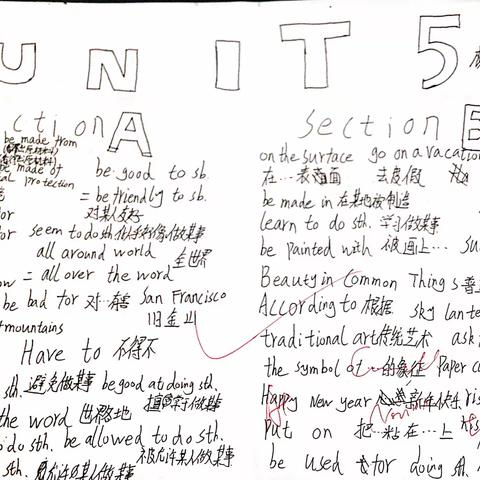 UNIT 5
ction A
be made from
be made of
al protection
be good to sb.
= be friendly to sb.
对某人友好
for seem to do sth 似乎好像做某事
all around world 全世界
= all over the word
be bad for 对…有害 San Francisco
旧金山
mountains
Have to 不得不
sth. 避免做某事 be good at doing sth.
the word 世界地 擅长于做某事
to do sth. be allowed to do sth.
sth. 允许某人做某事 被允许某人做某事
Section B
on the surface go on a vacation
在…表面 去度假
be made in 在某地被制造
learn to do sth. 学习做某事
be painted with 被画上…
Beauty in Common Things
According to 根据 sky lante
traditional art 传统艺术 ask
the symbol of …的象征 Paper c
Happy New year 新年快乐
Put on 把…粘在…上
be used for doing sth.